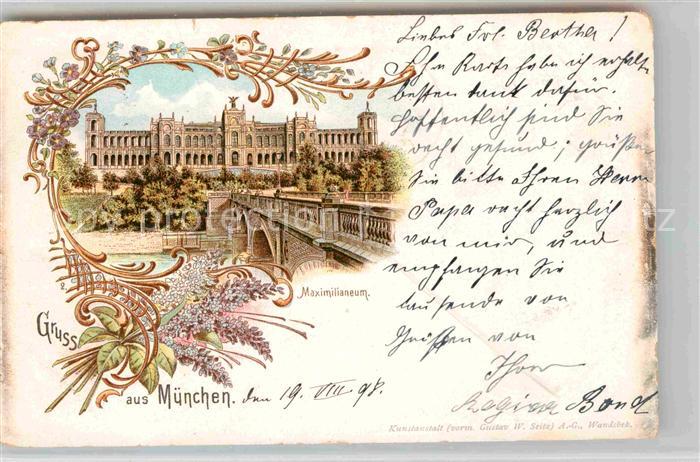 Liebes Frl. Bertha!
Ihre Karte habe ich erhalt.
besten Dank dafür.
Hoffentlich sind Sie
recht gesund; grüßen
Sie bitte Ihren Herrn
Papa recht herzlich
von mir, und
empfangen Sie
tausende von
Grüßen von
Ihrer
Maximilianeum.
2.
Gruss
aus München. den 19. VIII 98.
Kunstanstalt (vorm. Gustav W. Seitz) A.-G., Wandsbek.